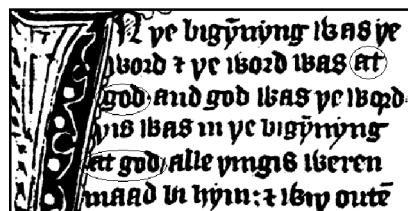 IN ye bigẏnẏng was ye
word ⁊ ye word was at
god and god was ye word
yis was in ye bigẏnẏng
at god alle yingis weren
maad bi hẏm: ⁊ wiþ outē